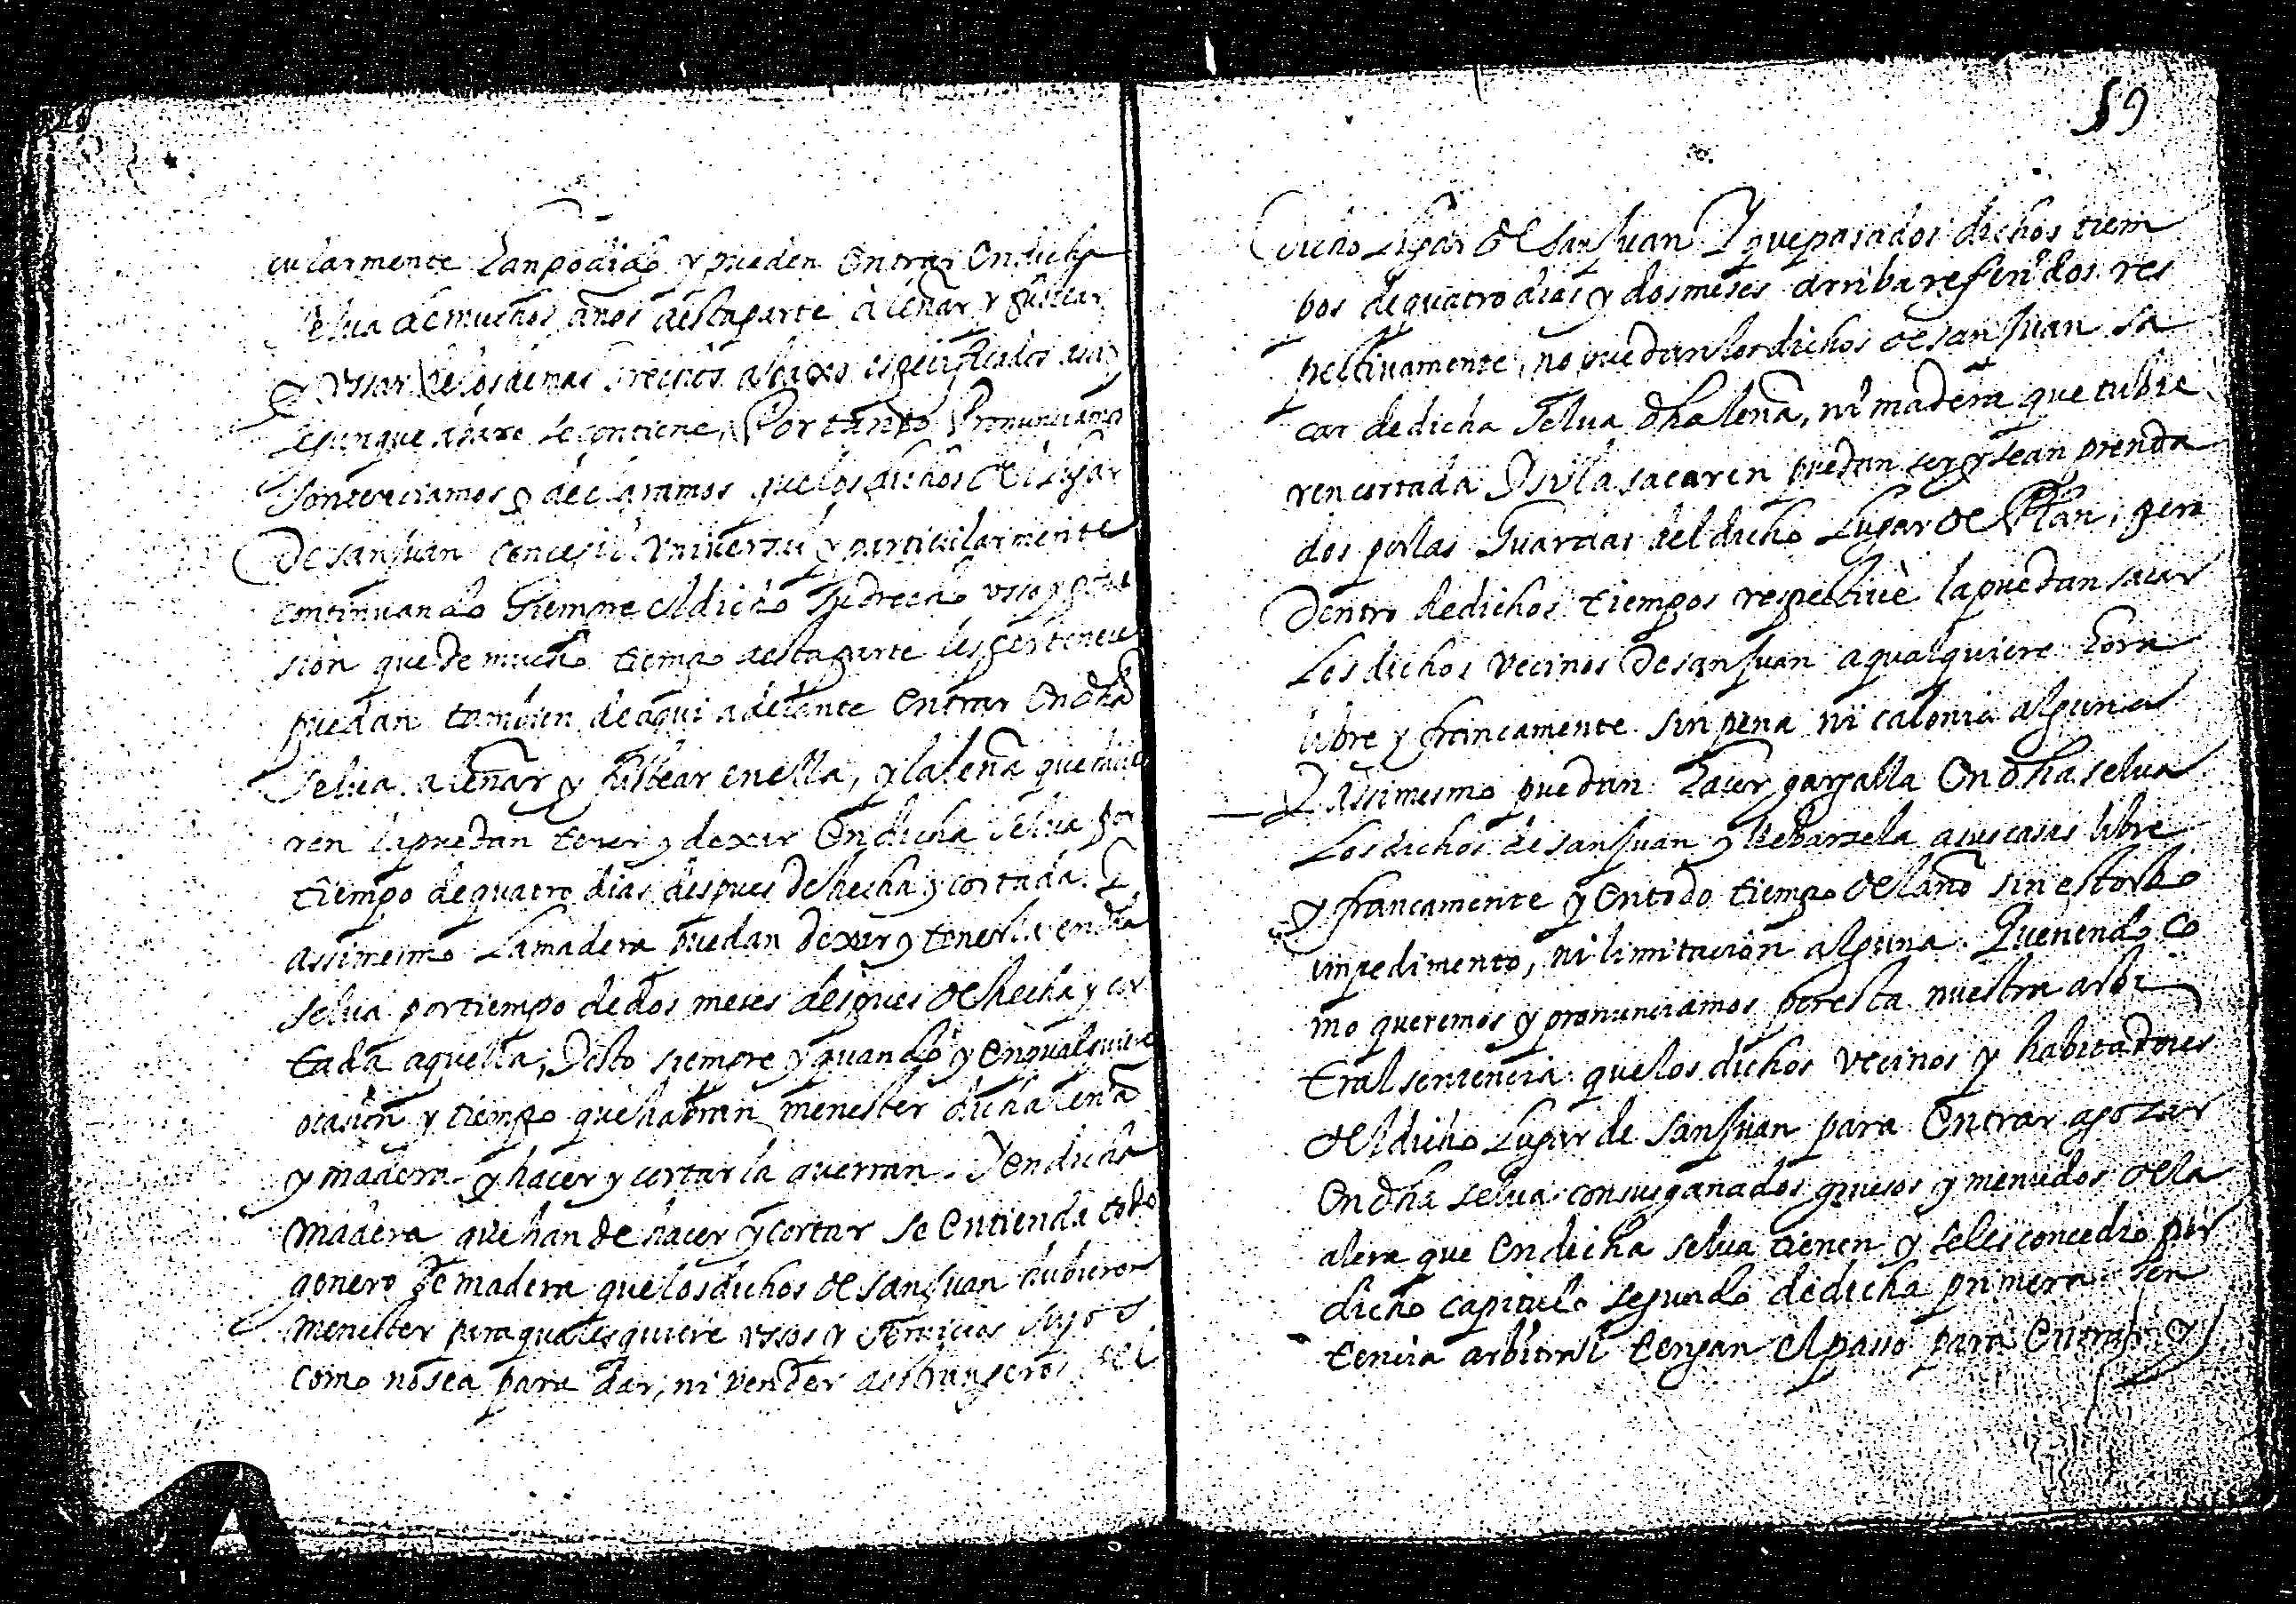 cularmente han podido y pueden Entrar En dicha
selua de muchos años desta parte à leñar y fustear
y vssar de los demas drechos abaxo especificados
segun que abaxo se contiene, Por tanto Pronunciamos
sentenciamos y declaramos que los dichos del Lugar
De san Juan concegil vniuersal y particularmente
continuando siempre el dicho su drecho vsso y
sion que de mucho tiempo desta parte les pertenece
puedan tambien de aqui adelante Entrar En dha
selua a leñar y fustear en ella, y la leña que
ren la puedan tener y dexar En dicha selua por
tiempo de quatro dias despues de hecha y cortada. Y
assimesmo La madera puedan dexar y tenerla en dha
selua por tiempo de dos meses despues de hecha y cor
tada aquella, Y esto siempre y quando y en qualquiere
ocasion y tiempo que habran menester dicha leña
y madera y hacer y cortar la querran. Y En dicha
madera que han de hacer y cortar se Entienda todo
genero de madera que los dichos de san Juan hubieren
menester para qualesquiere vsos y seruicios suyos
como no sea para dar, ni vender a estrangeros del
59
dicho Lugar de san Juan Y que pasados dichos tiem
pos de quatro dias y dos meses arriba referidos res
pectiuamente, no puedan los dichos de san Juan sa
car de dicha selua dha leña, ni madera que tubie
ren cortada Y si la sacaren puedan ser y sean prenda
dos por las Guardas del dicho Lugar de Plan, pero
Dentro de dichos tiempos respectiuè la puedan sacar
Los dichos vecinos de san Juan a qualquiere hora
libre y francamente sin pena ni calonia alguna
Y Assimesmo puedan hacer garsalla En dha selua
Los dichos de san Juan y llebarsela a sus casas libre
y francamente y en todo tiempo del año sin estorbo
impedimento, ni limitacion alguna. Queriendo co
mo queremos y pronunciamos por esta nuestra arbi
tral sentencia que los dichos vecinos y habitadores
del dicho Lugar de san Juan para Entrar a gozar
En dha selua con sus ganados gruesos y menudos de la
alera que En dicha selua tienen y se les concedio por
dicho capitulo segundo de dicha primera sen
tencia arbitral tengan el passo para Entrar y